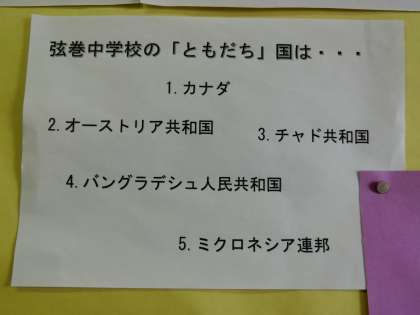 弦巻中学校の「ともだち」国は・・・
1.カナダ
2.オーストリア共和国
3.チャド共和国
4.バングラデシュ人民共和国
5.ミクロネシア連邦